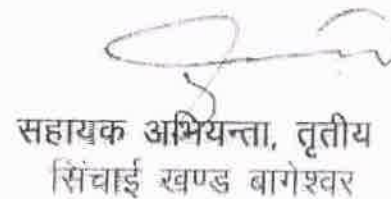 सहायक अभियन्ता, तृतीय
सिंचाई खण्ड बागेश्वर